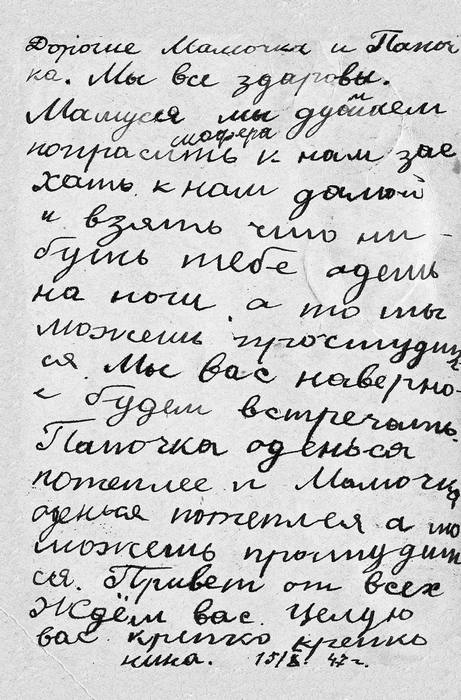 Дорогие Мамочка и Папоч
ка. Мы все здаровы.
Мамуся мы думаем
шофера
попрасить к нам зае
хать к нам дамой
и взять что ни-
будь тебе адеть
на ноги а то ты
можешь простудить
ся. Мы вас наверно-
е будем встречать.
Папочка оденься
потеплее и Мамочка
оденься потеплея а то
можешь простудит
ся. Привет от всех
Ждём вас. Целую
вас крепко крепко
нина. 15/X 47 г.